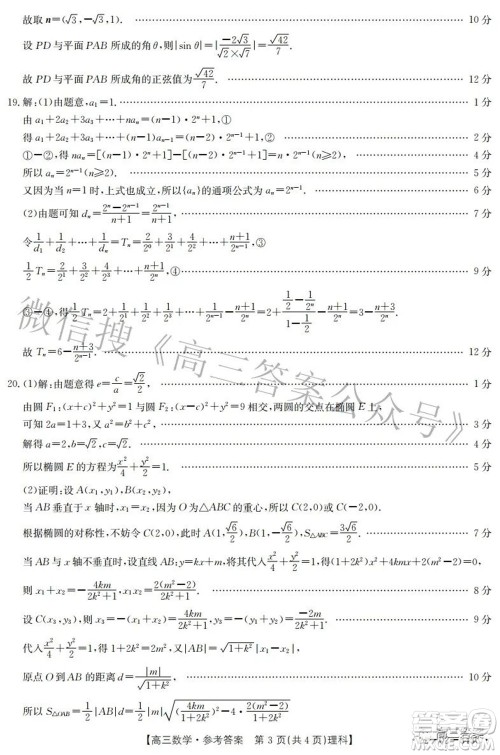 故取 n=(√3,-√3,1). 10 分
设 PD 与平面 PAB 所成的角 θ,则|sin θ|=|-2√3/(√2×√7)|=√42/7.
故 PD 与平面 PAB 所成角的正弦值为√42/7. 12 分
19.解:(1)由题意,a₁=1. 1 分
由 a₁+2a₂+3a₃+…+naₙ=(n-1)·2ⁿ+1,①
得 a₁+2a₂+3a₃+…+(n-1)aₙ₋₁=(n-2)·2ⁿ⁻¹+1,② 2 分
①-②,得 naₙ=[(n-1)·2ⁿ+1]-[(n-2)·2ⁿ⁻¹+1]=n·2ⁿ⁻¹(n≥2), 4 分
所以 aₙ=2ⁿ⁻¹(n≥2). 5 分
又因为当 n=1 时,上式也成立,所以{aₙ}的通项公式为 aₙ=2ⁿ⁻¹. 6 分
(2)由题可知 dₙ=(2ⁿ-2ⁿ⁻¹)/(n+1)=2ⁿ⁻¹/(n+1), 7 分
令1/d₁+1/d₂+…+1/dₙ=Tₙ=2/2⁰+3/2¹+4/2²+…+(n+1)/2ⁿ⁻¹,③
1/2 Tₙ=2/2¹+3/2²+4/2³+…+(n+1)/2ⁿ,④ 9 分
③-④,得1/2 Tₙ=2+1/2+1/2²+…+1/2ⁿ⁻¹-(n+1)/2ⁿ=2+(1/2-1/2ⁿ)/(1-1/2)-(n+1)/2ⁿ=3-(n+3)/2ⁿ.
故 Tₙ=6-(n+3)/2ⁿ⁻¹. 12 分
20.(1)解:由题意得 e=c/a=√2/2, 1 分
由圆 F₁:(x+c)²+y²=1 与圆 F₂:(x-c)²+y²=9 相交,两圆的交点在椭圆 E 上,
可知 2a=1+3,又 a²=b²+c², 3 分
解得 a=2,b=√2, 4 分
所以椭圆 E 的方程为x²/4+y²/2=1. 5 分
(2)证明:设 A(x₁,y₁),B(x₂,y₂),
当 AB 垂直于 x 轴时,x₁=x₂,因为 O 为△ABC 的重心,所以 C(2,0)或 C(-2,0).
根据椭圆的对称性,不妨令 C(2,0),此时 A(1,√6/2),B(1,√6/2),S△ABC=3√6/2. 7 分
当 AB 与 x 轴不垂直时,设直线 AB:y=kx+m,将其代入x²/4+y²/2=1,得(1+2k²)x²+4kmx+2(m²-2)=0,
则 x₁+x₂=-4km/(2k²+1),x₁x₂=2(m²-2)/(2k²+1). 8 分
设 C(x₃,y₃),则 x₃=-(x₁+x₂)=4km/(2k²+1),y₃=-(y₁+y₂)=-2m/(2k²+1). 9 分
代入x²/4+y²/2=1,得 1+2k²=2m²,又|AB|=√(1+k²)|x₁-x₂|,
原点 O 到 AB 的距离 d=|m|/√(1+k²), 10 分
所以 S△OAB=1/2|AB|d=1/2|m|√((-4km/(2k²+1))²-4·2(m²-2)/(2k²+1))
【高三数学·参考答案 第 3 页(共 4 页)理科】
微信搜《高三答案公众号》